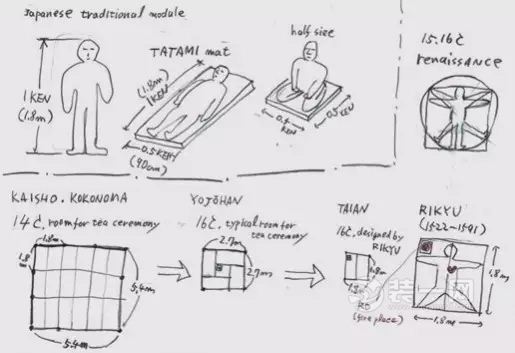 Japanese traditional module
1 KEN
(1.8m)
TATAMI mat
(1.8m)
1 KEN
0.5 KEN
(90cm)
half size
0.5
KEN
0.5
KEN
15.16C
renaissance
KAISHO. KOKONOMA
14C, room for tea ceremony
1.8m
1.8
m
5.4m
5.4m
YOJŌHAN
16C, typical room for
tea ceremony
2.7m
2.7m
TAIAN
16C, designed by
RIKYU
1.8m
1.8m
RO
(fire place)
RIKYU
(1522-1591)
1.8m
1.8m